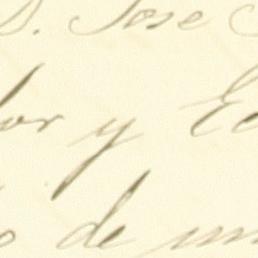 D. Jose
or y Ed
o de un